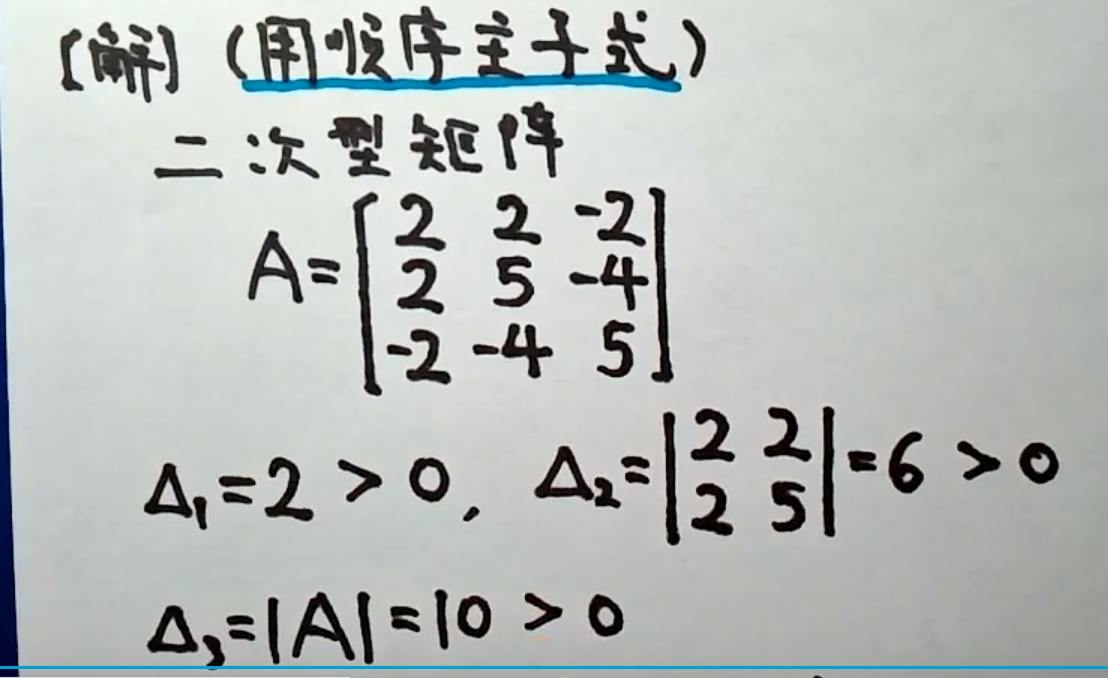 [解] (用顺序主子式)
二次型矩阵
A=[2 2 -2
2 5 -4
-2 -4 5]
Δ₁=2>0, Δ₂=|2 2
2 5|=6>0
Δ₃=|A|=10>0